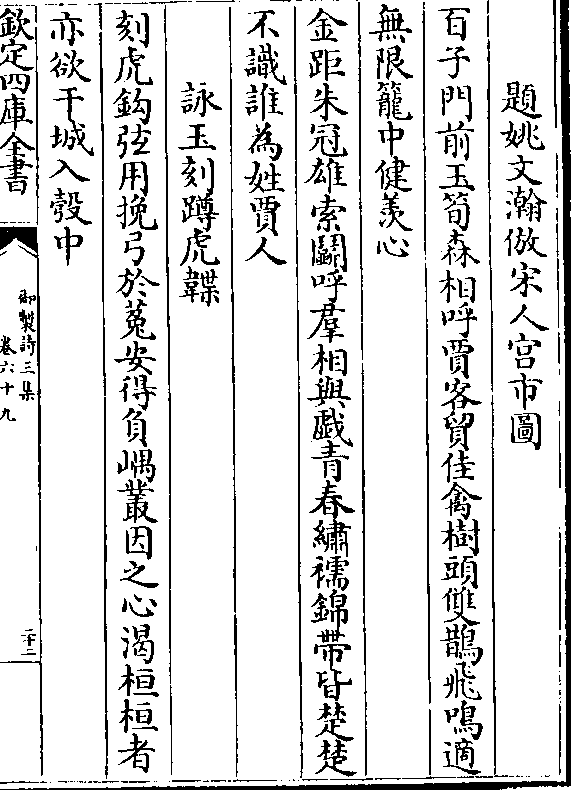 題姚文瀚倣宋人宫市圖
百子門前玉筍森相呼賈客貿佳禽樹頭雙鵲飛鳴適
無限籠中健羨心
金距朱冠雄索鬭呼羣相與戱青春繡襦錦帶皆楚楚
不識誰為姓賈人
詠玉刻蹲虎韘
刻虎鈎弦用挽弓於菟安得負嵎叢因之心渇桓桓者
亦欲干城入彀中
欽定四庫全書
御製詩三集
卷六十九
二十二